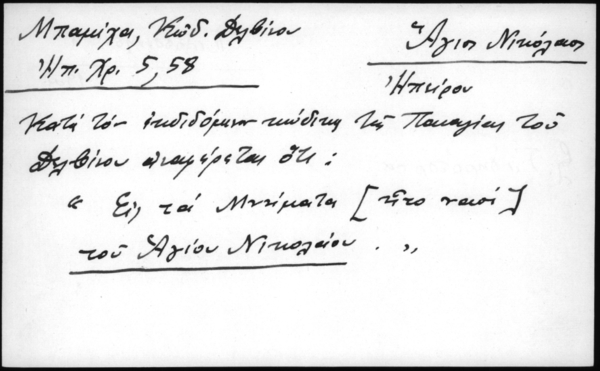 Μπαμίχα, Κώδ. Δελβίνου
Ἠπ. Χρ. 5, 58
Ἅγιος Νικόλαος
Ἠπείρου
Κατά τόν ἐκδιδόμενον κώδικα τῆς Παναγίας τοῦ
Δελβίνου ἀναφέρεται ὅτι :
“ Εἰς τά Μνήματα [ ναοί ]
τοῦ Ἁγίου Νικολαίου . „